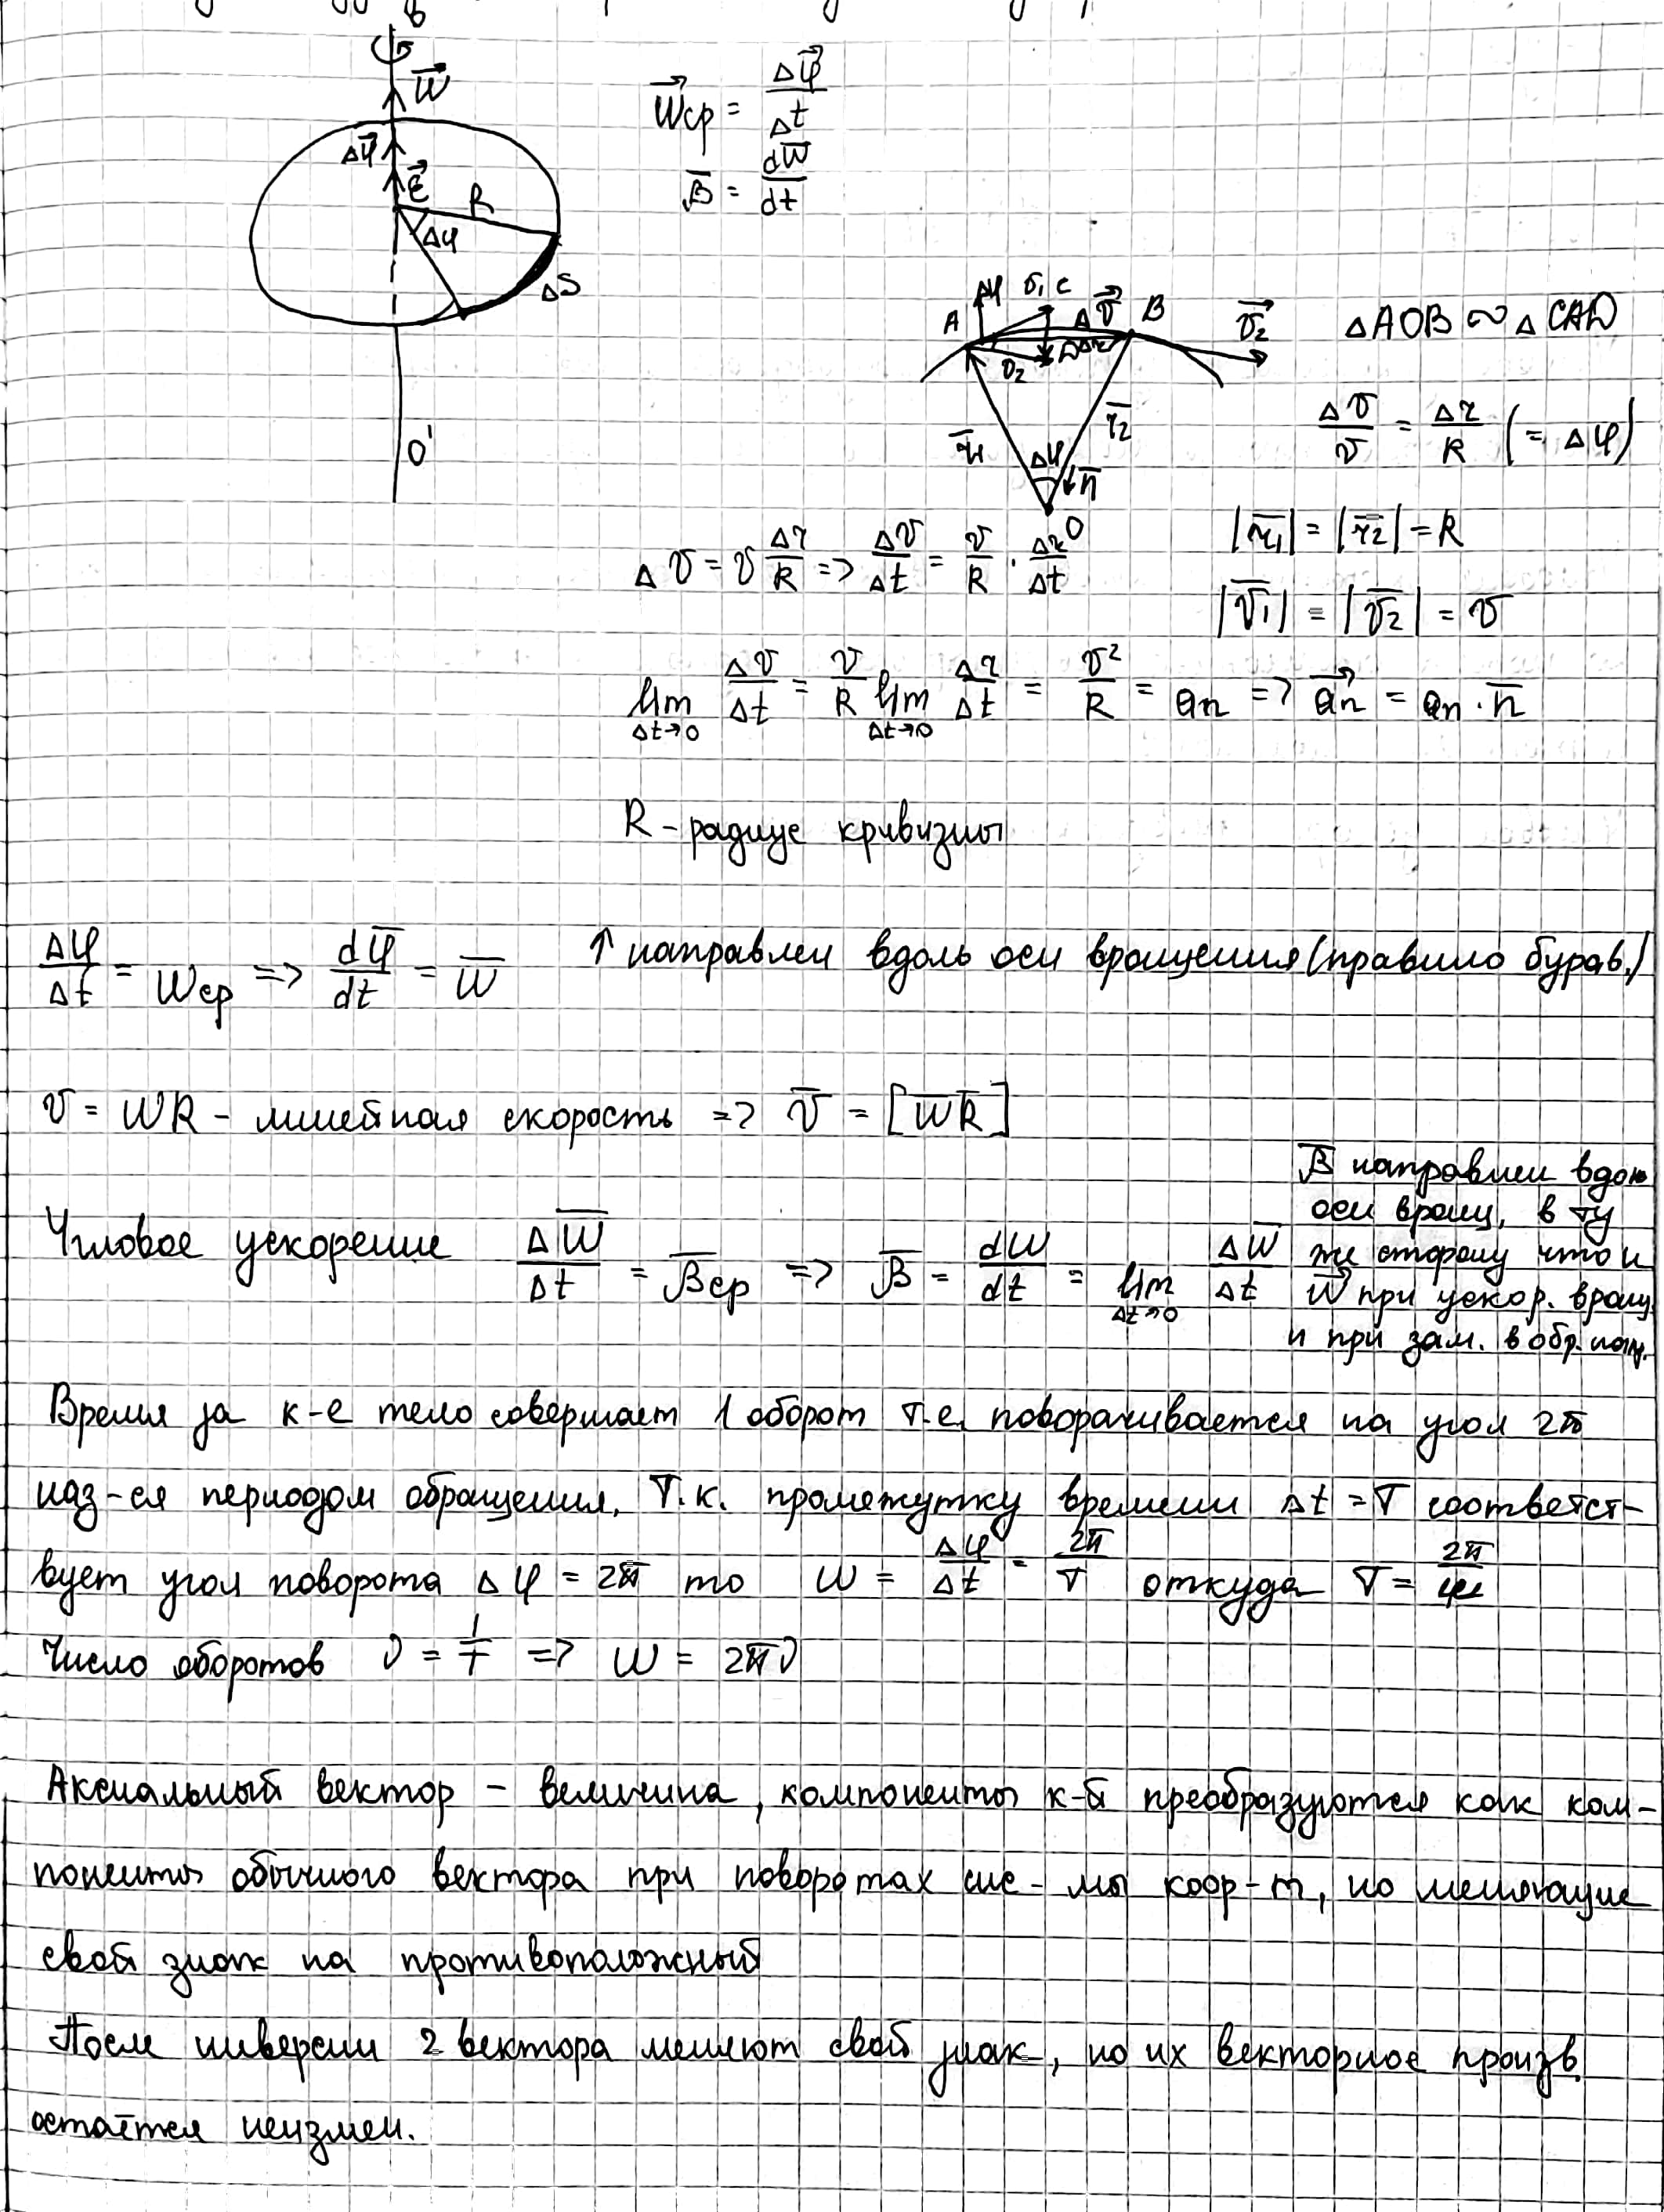 W⃗
Δφ⃗
ε⃗
R
Δφ
ΔS
O'
W⃗ср = Δφ⃗/Δt
β̅ = dW̅/dt
A Δφ υ₁ C Δυ⃗ B υ⃗₂
υ₂ D Δr
r̅₁ Δφ r̅₂ n̅
O
ΔAOB ∾ ΔCAD
Δυ/υ = Δr/R (= Δφ)
|r̅₁| = |r̅₂| = R
Δυ = υ Δr/R => Δυ/Δt = υ/R · Δr/Δt
|υ̅₁| = |υ̅₂| = υ
lim Δt→0 Δυ/Δt = υ/R lim Δt→0 Δr/Δt = υ²/R = an => a⃗n = an · n̅
R - радиус кривизны
Δφ/Δt = Wср => dφ̅/dt = W̅ ↑ направлен вдоль оси вращения (правило бурав.)
υ = WR - линейная скорость => υ̅ = [W̅R̅]
β̅ направлен вдоль
оси вращ. в ту
же сторону что и
W⃗ при ускор. вращ.
и при зам. в обр. напр.
Угловое ускорение ΔW̅/Δt = β̅ср => β̅ = dW/dt = lim Δt→0 ΔW̅/Δt
Время за к-е тело совершает 1 оборот т.е. поворачивается на угол 2π
наз-ся периодом обращения. Т.к. промежутку времени Δt = T соответст-
вует угол поворота Δφ = 2π то W = Δφ/Δt = 2π/T откуда T = 2π/W
Число оборотов ν = 1/T => W = 2πν
Аксиальный вектор - величина, компоненты к-й преобразуются как ком-
поненты обычного вектора при поворотах сис-мы коор-т, но меняющие
свой знак на противоположный
После инверсии 2 вектора меняют свой знак, но их векторное произв.
остаётся неизмен.